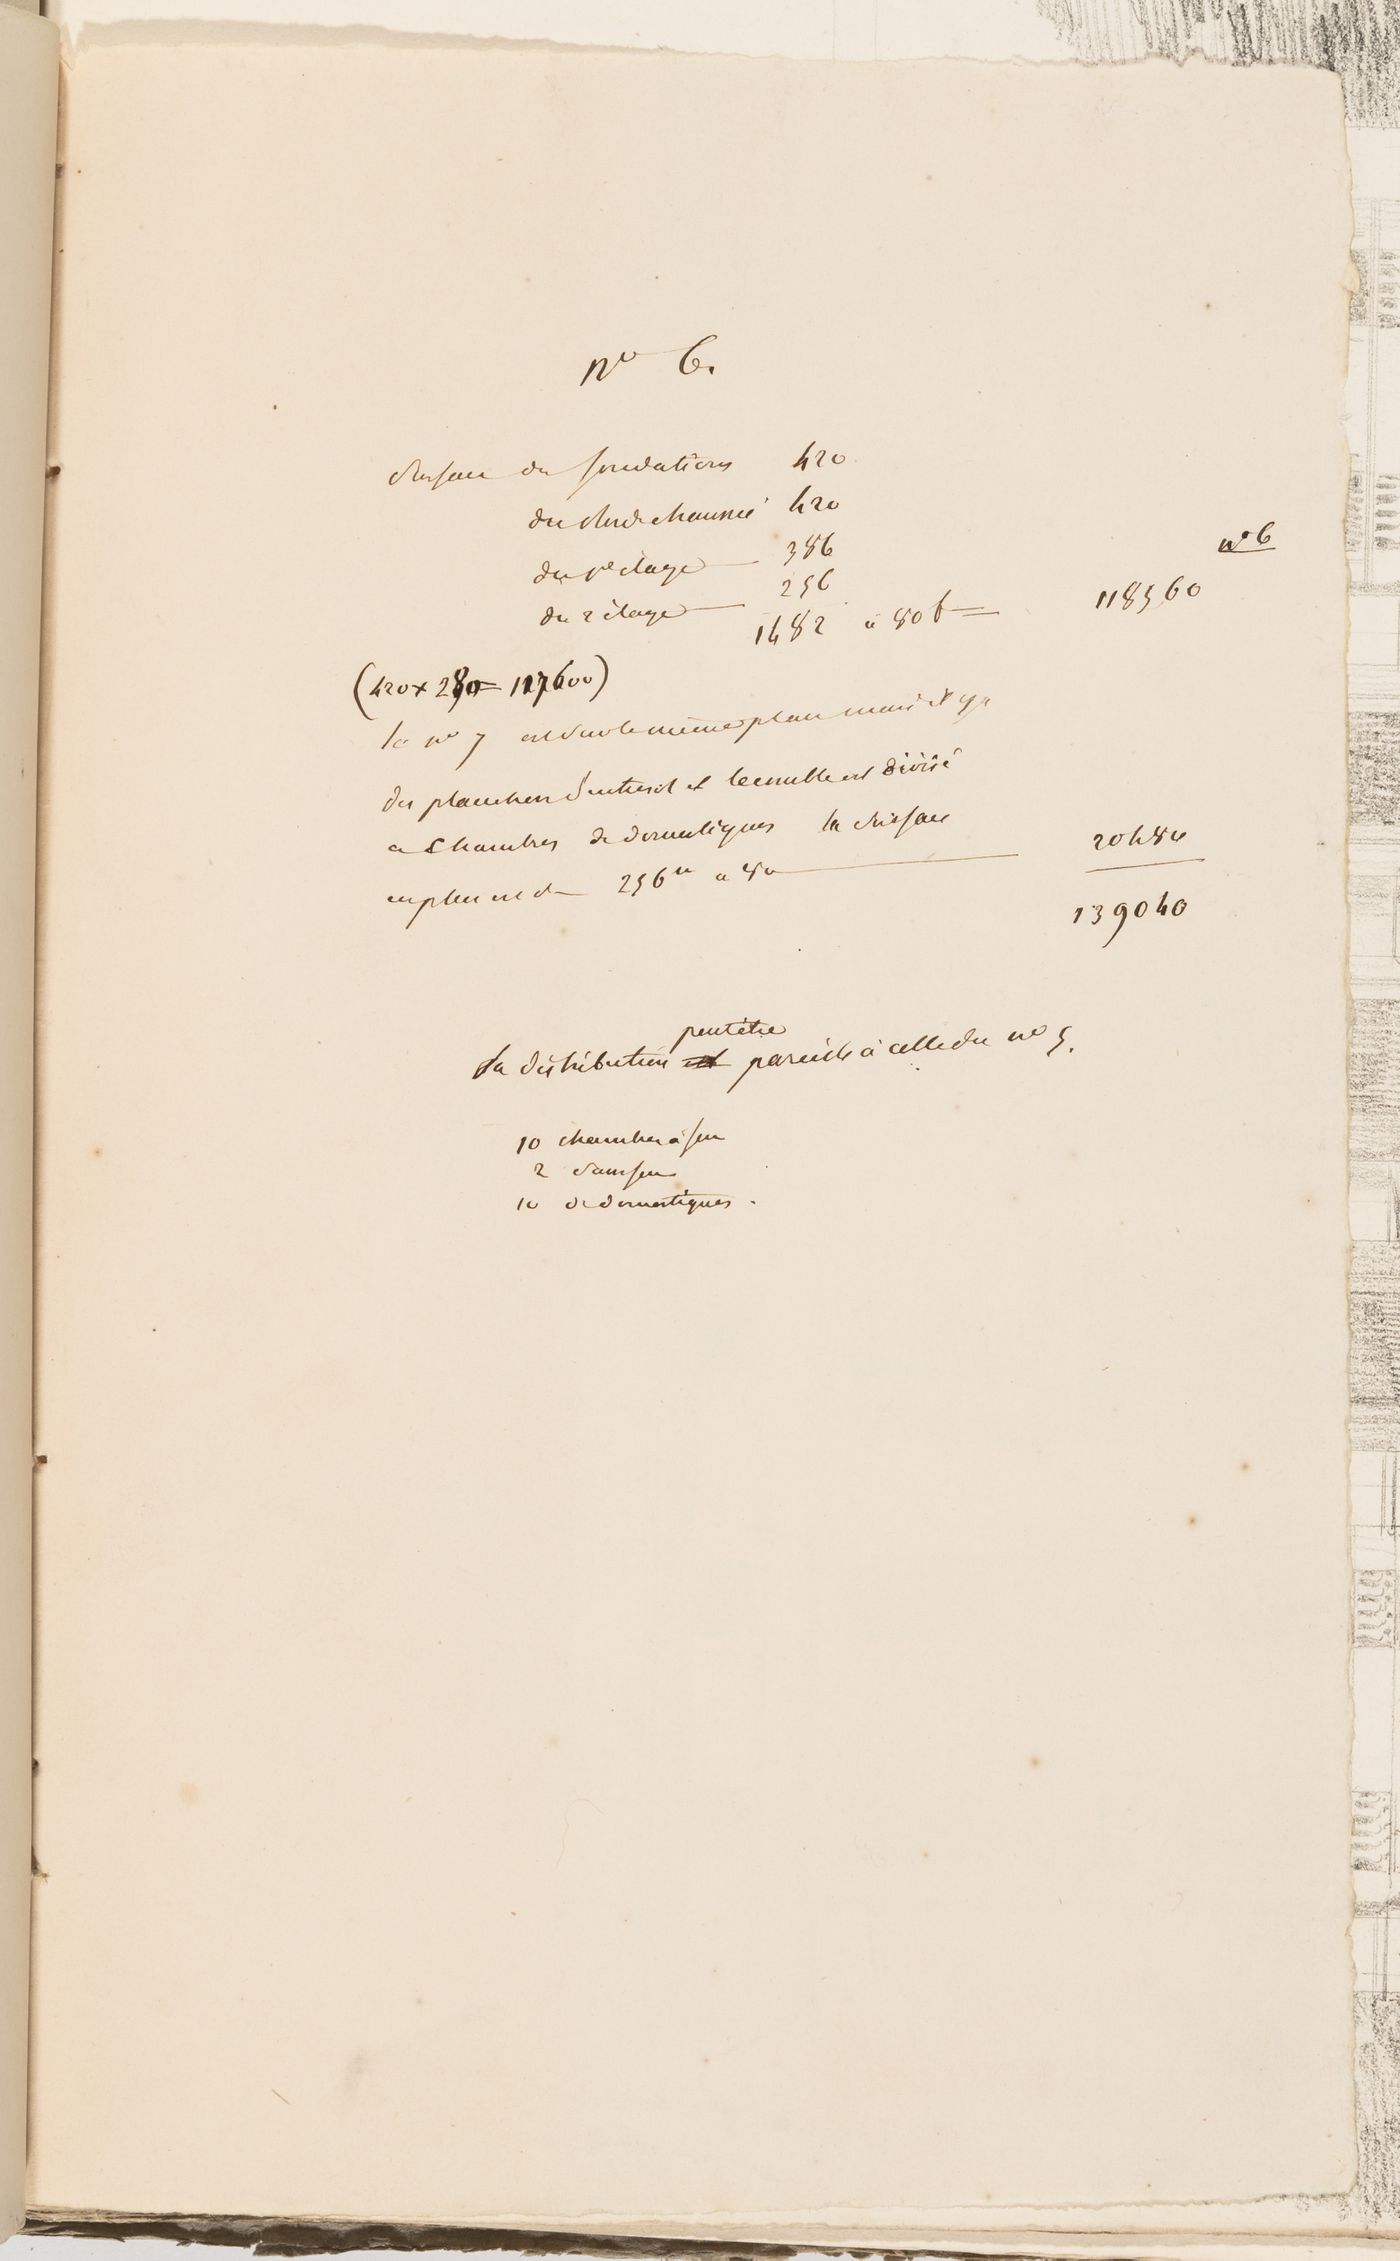 n° 6.
Surface des fondations 420
du rez de chaussée 420
du 1er étage 386
n° 6
du 2 étage 256
1482 à 80 f = 118560
(420 x 280 = 117600)
le n° 7 est sur le même plan mais il y a
des planchers d'entresol et le comble est divisé
a chambres de domestiques la surface
en plus est de 256 m à 80 20480
139040
peut être
la distribution est pareille à celle du n° 5.
10 chambres à feu
2 sans feu
10 de domestiques.